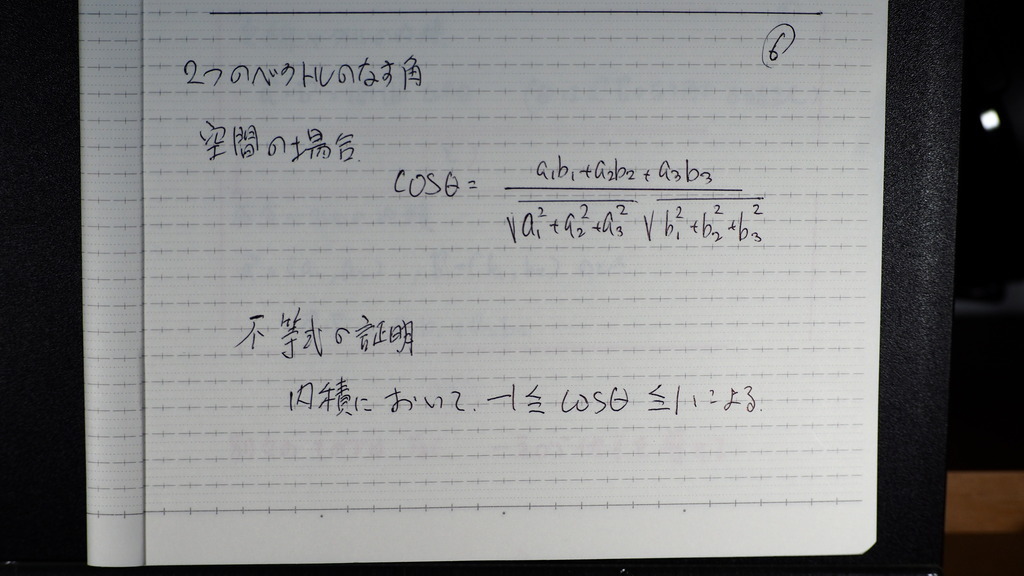 ⑥
2つのベクトルのなす角
空間の場合.
cosθ = (a₁b₁+a₂b₂+a₃b₃)/(√(a₁²+a₂²+a₃²) √(b₁²+b₂²+b₃²))
不等式の証明
内積において、-1≦ cosθ ≦1による.